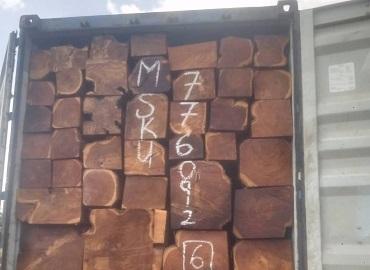 MSKU
776092
6